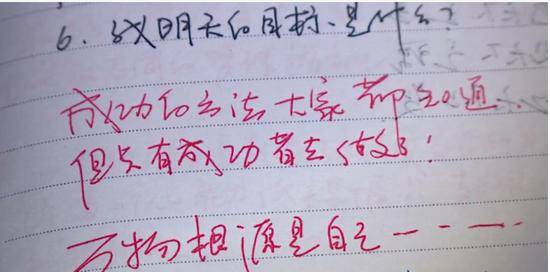 6、我明天的目标是什么？
成功的方法大家都知道、
但只有成功者去做！
万物根源是自己————